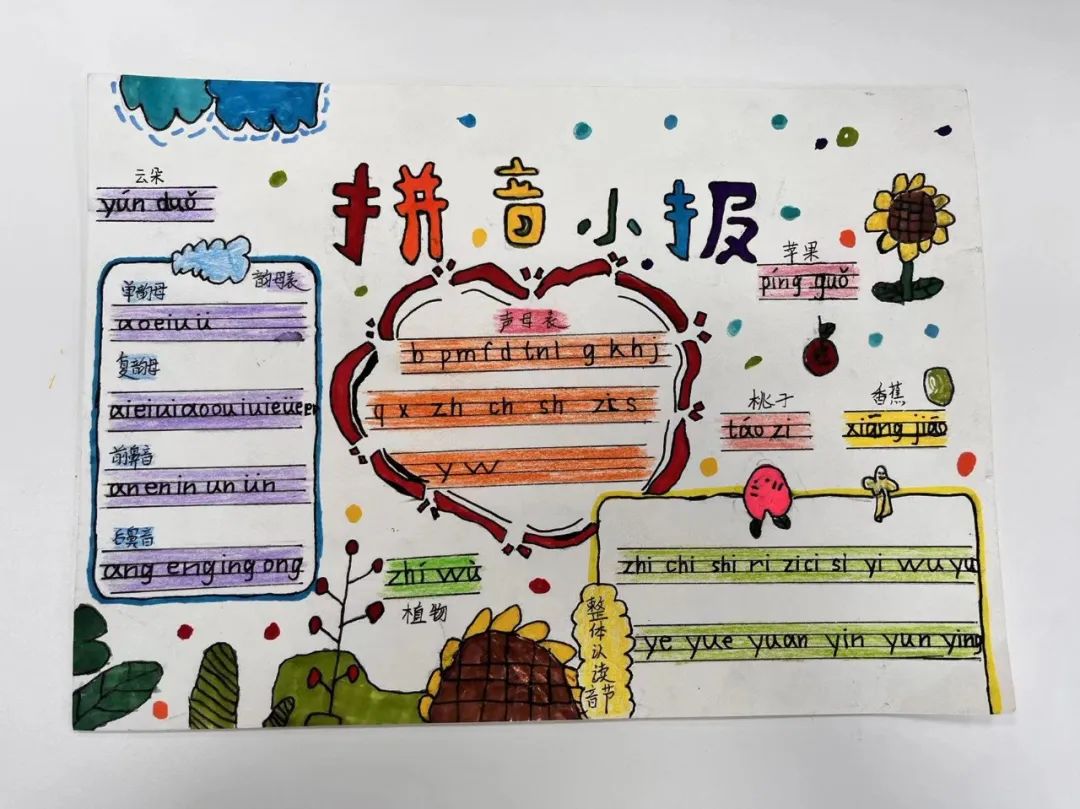 拼音小报
云朵
yún duǒ
韵母表
单韵母
a o e i u ü
复韵母
ai ei ui ao ou iu ie üe er
前鼻音
an en in un ün
后鼻音
ang eng ing ong
声母表
b p m f d t n l g k h j
q x zh ch sh z c s
y w
苹果
píng guǒ
桃子
táo zi
香蕉
xiāng jiāo
zhí wù
植物
整体认读音节
zhi chi shi ri zi ci si yi wu yu
ye yue yuan yin yun ying